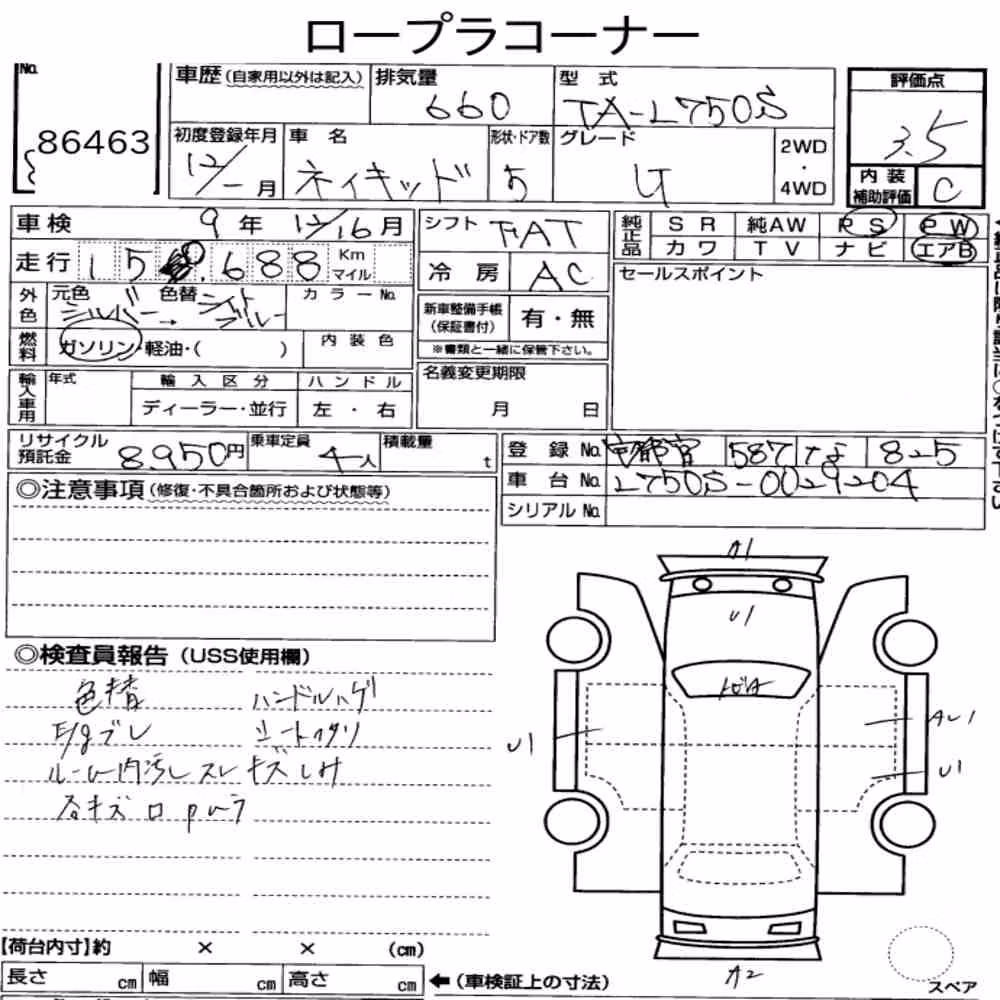 ロープラコーナー
No.
86463
車歴 (自家用以外は記入)
排気量
660
型式
TA-L750S
評価点
3.5
初度登録年月
12/- 月
車名
ネイキッド
形状・ドア数
5
グレード
G
2WD
・
4WD
内装
補助評価
C
車検 9年 12/16月
走行 158.688 Km マイル
外色
元色 シルバー → 色替 ライトブルー
カラーNo.
燃料
ガソリン・軽油・( )
内装色
輸入車用
年式
輸入区分
ディーラー・並行
ハンドル
左・右
シフト FAT
冷房 AC
新車整備手帳
(保証書付)
有・無
※書類と一緒に保管下さい。
名義変更期限
月 日
純正品
SR 純AW PS PW
カワ TV ナビ エアB
セールスポイント
リサイクル
預託金
8,950円
乗車定員
4人
積載量
t
登録No. 宇都宮 587 な 825
車台No. L750S-0029204
シリアルNo.
◎注意事項 (修復・不具合箇所および状態等)
◎検査員報告 (USS使用欄)
色替 ハンドルハゲ
E/gブレ シートヘタリ
ルーム内汚レスレキズしみ
各キズ凹
A1
U1
U1
AU1
U1
A2
【荷台内寸】約 × × (cm)
長さ cm 幅 cm 高さ cm ←(車検証上の寸法)
スペア